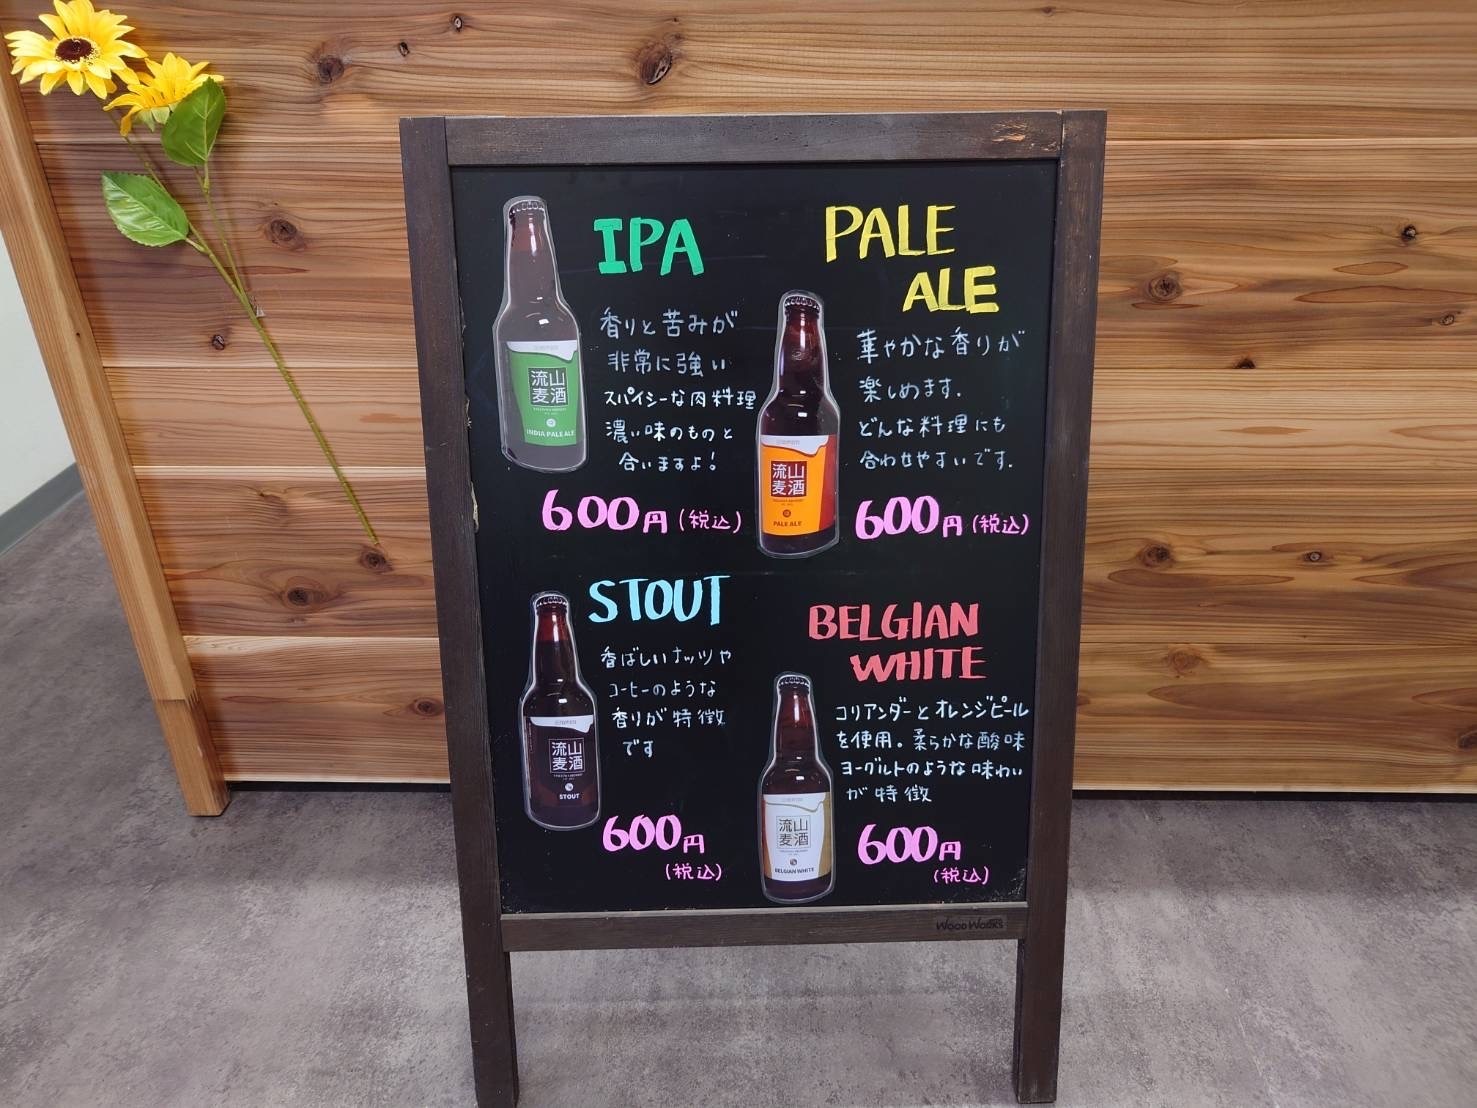 IPA
香りと苦みが
非常に強い
スパイシーな肉料理
濃い味のものと
合いますよ!
600円(税込)
流山
麦酒
INDIA PALE ALE
PALE
ALE
華やかな香りが
楽しめます.
どんな料理にも
合わせやすいです.
600円(税込)
流山
麦酒
PALE ALE
STOUT
香ばしいナッツや
コーヒーのような
香りが特徴
です
600円
(税込)
流山
麦酒
STOUT
BELGIAN
WHITE
コリアンダーとオレンジピール
を使用。柔らかな酸味
ヨーグルトのような味わい
が特徴
600円
(税込)
流山
麦酒
BELGIAN WHITE
WOOD WORKS